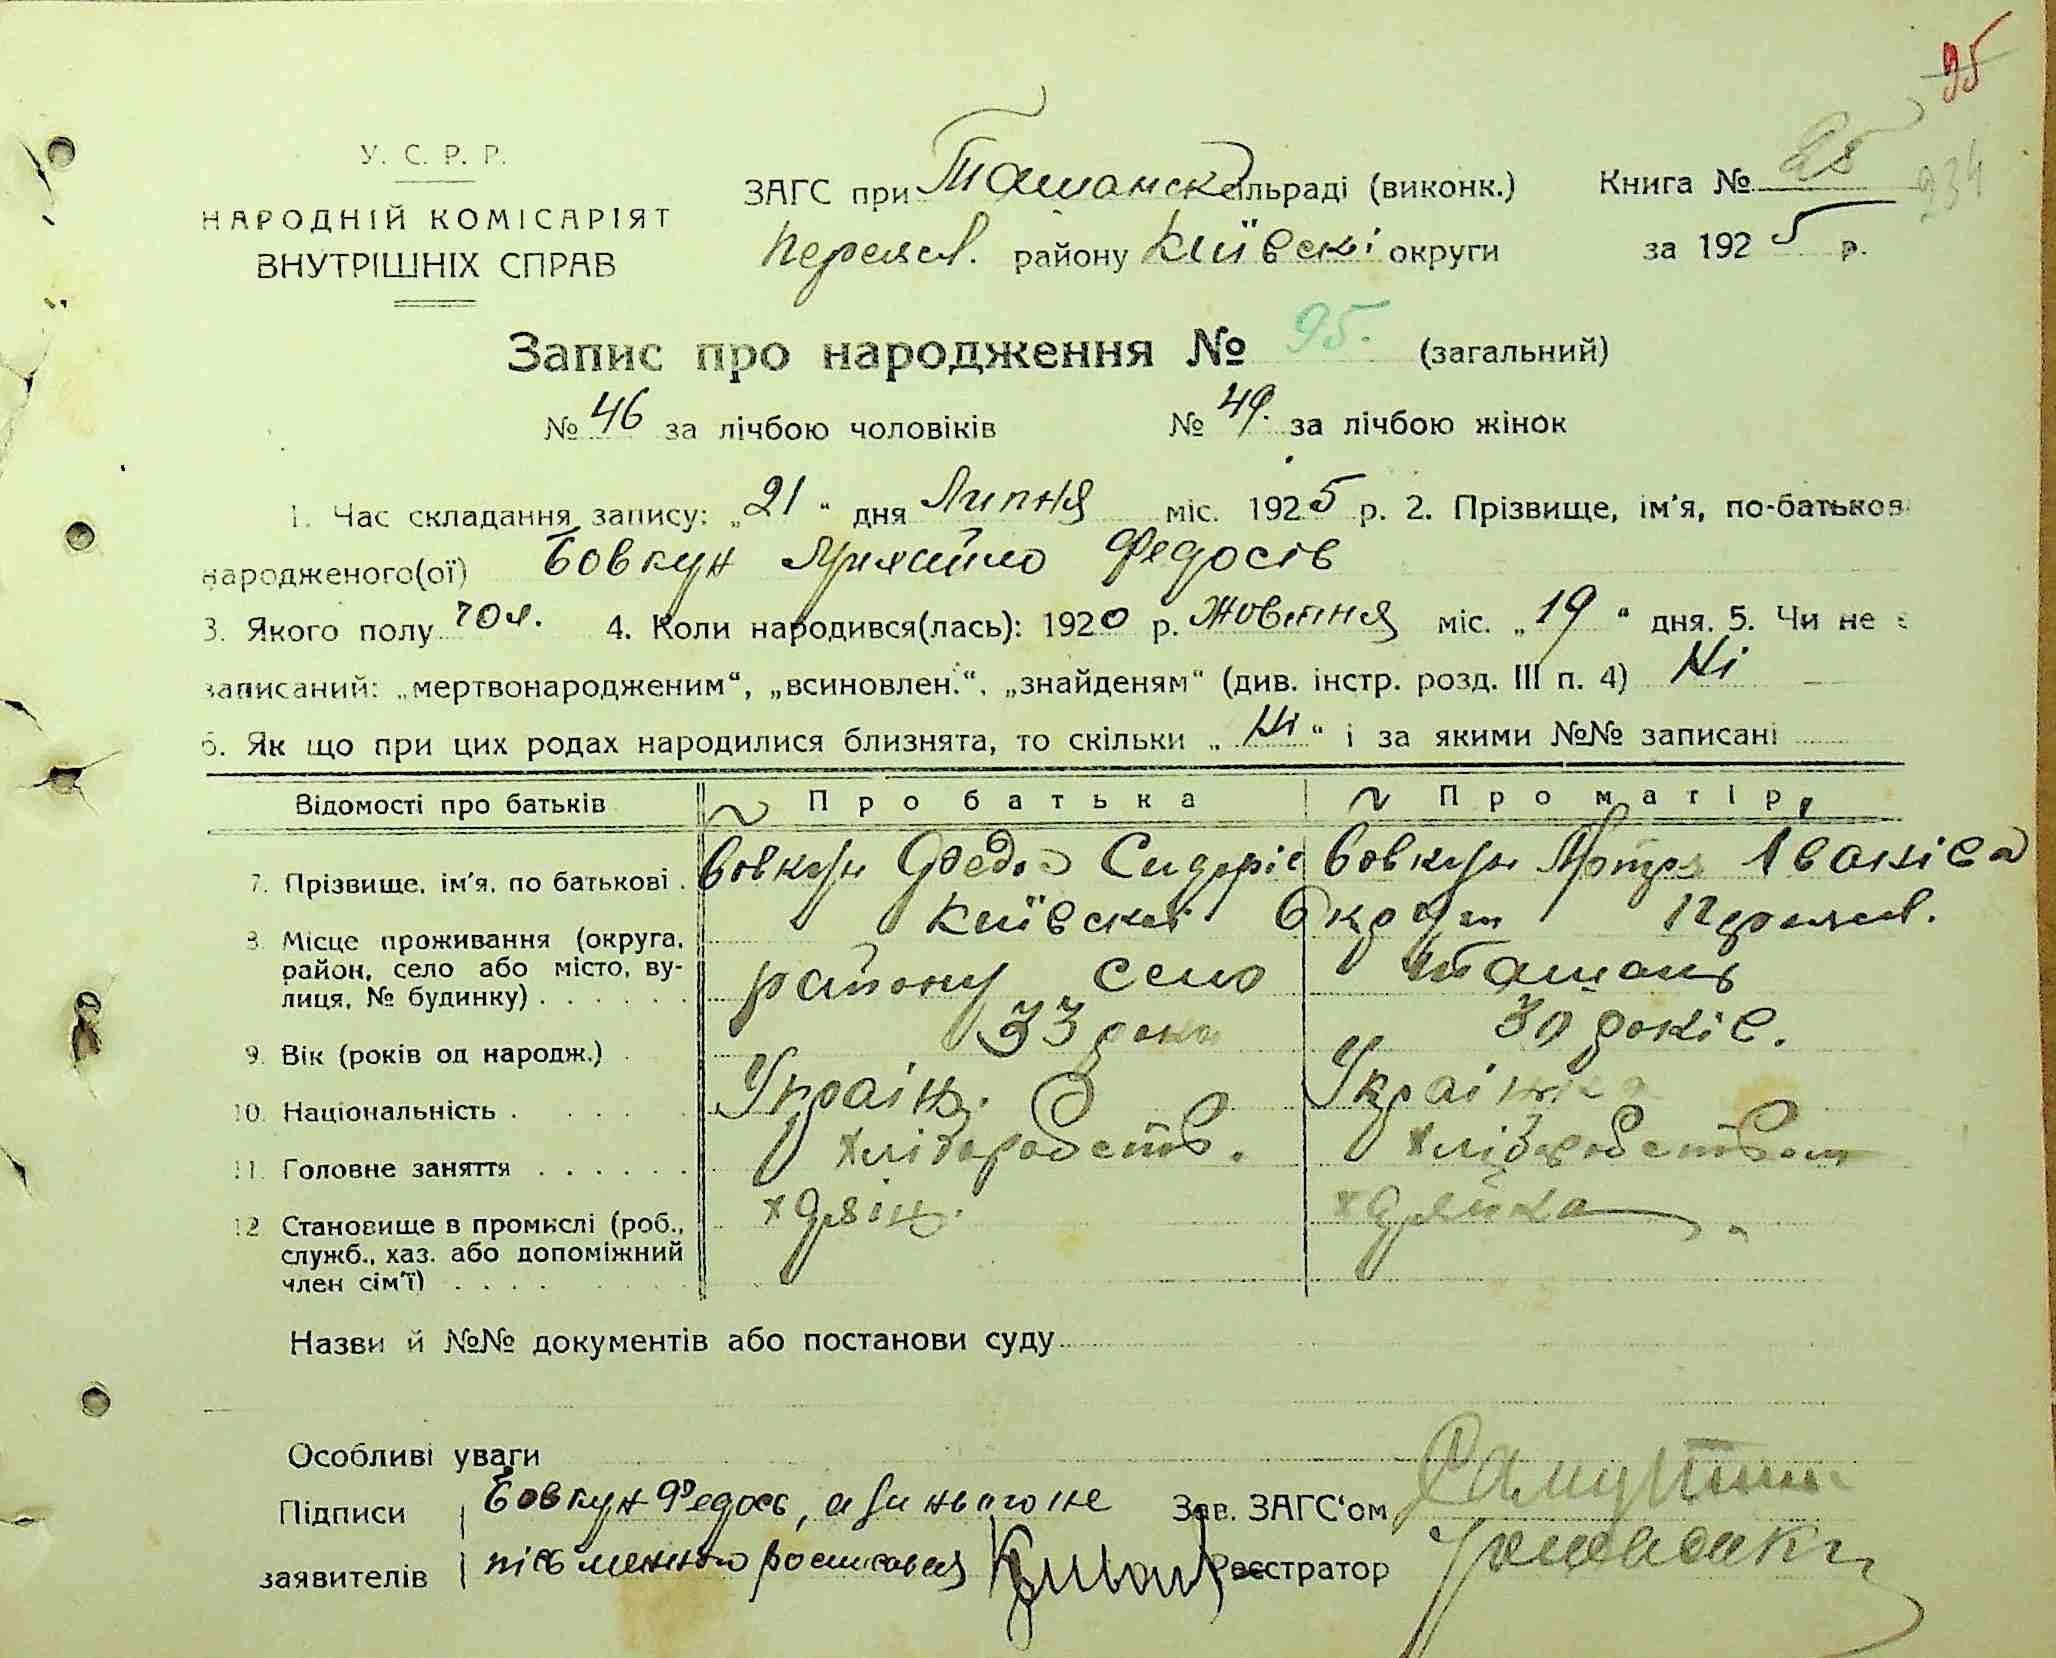 95
234
У. С. Р. Р.
НАРОДНІЙ КОМІСАРІЯТ
ВНУТРІШНІХ СПРАВ
ЗАГС при Ташанск сільраді (виконк.) Книга № 25
Переясл. району Київскі округи за 1925 р.
Запис про народження № 95. (загальний)
№ 46 за лічбою чоловіків № 49. за лічбою жінок
1. Час складання запису: „21“ дня Липня міс. 1925 р. 2. Прізвище, ім'я, по-батькові
народженого(ої) Бовкун Михайло Федосів
3. Якого полу чол. 4. Коли народився(лась): 1920 р. Жовтня міс. „19“ дня. 5. Чи не є
записаний: „мертвонародженим“, „всиновлен.“, „знайденям“ (див. інстр. розд. III п. 4) Ні
6. Як що при цих родах народилися близнята, то скільки „Ні“ і за якими №№ записані
Відомості про батьків Про батька Про матір
7. Прізвище, ім'я, по батькові . Бовкун Федос Сидорів Бовкун Іванівна
8. Місце проживання (округа, Київскоі Округи Переясл.
район, село або місто, ву-
лиця, № будинку) . . . . . . району село Ташань
9. Вік (років од народж.) . 33 роки 30 років.
10. Національність . . . . . Україн. Українка
11. Головне заняття . . . . . . хліборобств. хліборобством
12 Становище в промислі (роб.,
служб., хаз. або допоміжний
член сім'ї) . . . .
Назви й №№ документів або постанови суду
Особливі уваги
Підписи Бовкун Федось, а за нього не Зав. ЗАГС'ом
заявителів письменного росписався Реєстратор